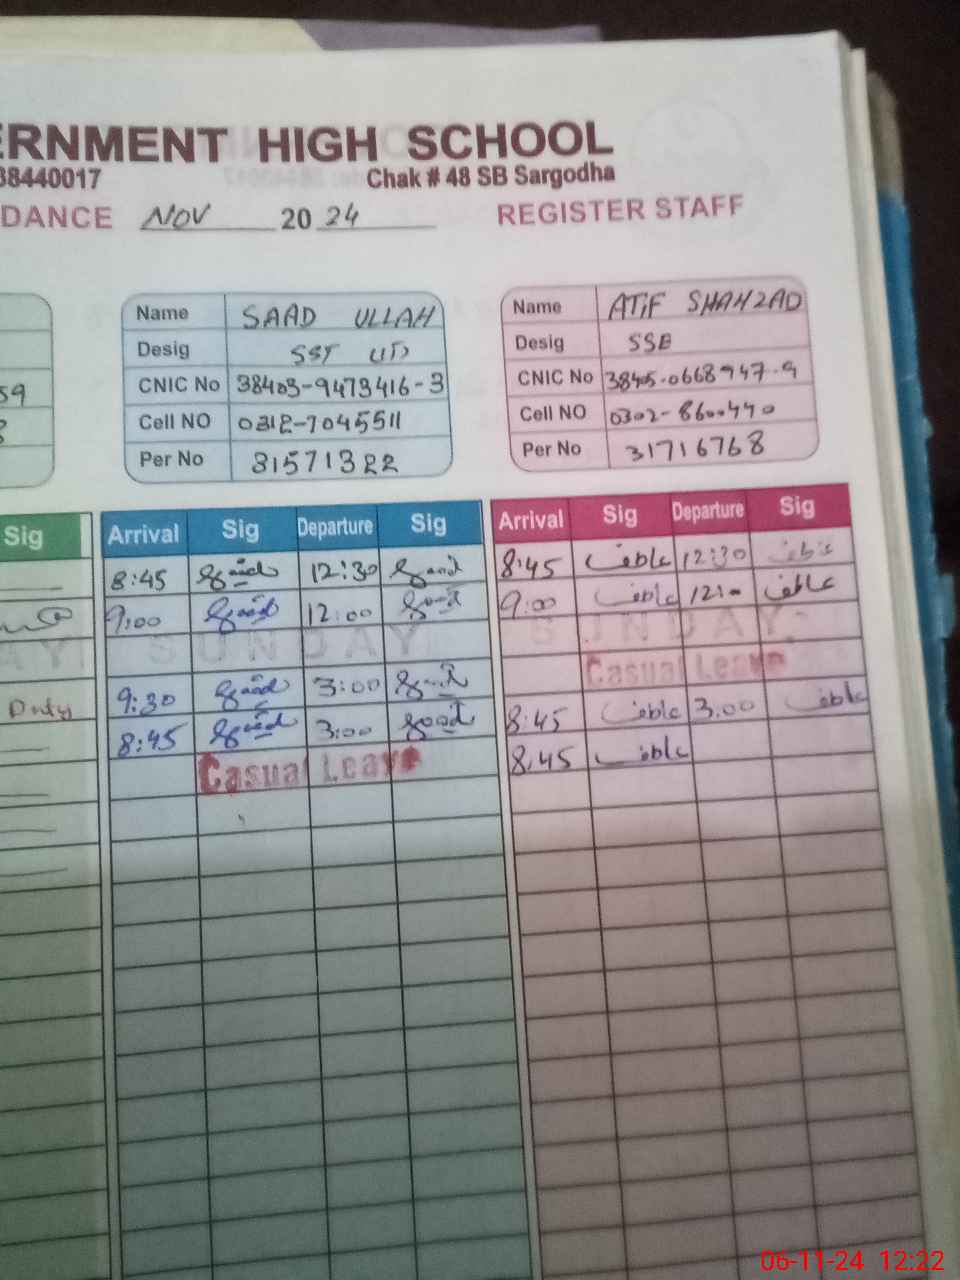 ERNMENT HIGH SCHOOL
38440017 Chak # 48 SB Sargodha
DANCE NOV 20 24 REGISTER STAFF
Name SAAD ULLAH
Desig SST
CNIC No 38403-9473416-3
Cell NO 0312-7045511
Per No 31571322
Name ATIF SHAHZAD
Desig SSE
CNIC No 38405-0668947-9
Cell NO 0302-8600440
Per No 31716768
59
8
Sig
Duty
Arrival Sig Departure Sig
8:45 12:30
9:00 12:00
SUNDAY
9:30 3:00
8:45 3:00
Casual Leave
Arrival Sig Departure Sig
8:45 عاطف 12:30 عاطف
9:00 عاطف 12:00 عاطف
SUNDAY
Casual Leave
8:45 عاطف 3:00 عاطف
8:45 عاطف
06-11-24 12:22